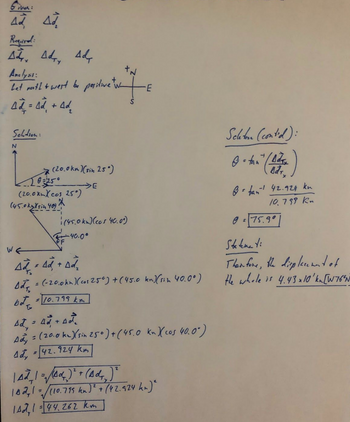 Given:
Δd⃗₁ Δd⃗₂
Required:
Δd⃗Tx Δd⃗Ty Δd⃗T
Analysis:
Let north + west be positive
+N
+W E
S
Δd⃗T = Δd⃗₁ + Δd⃗₂
Solution:
N
(20.0km)(sin 25°)
θ=25°
E
(20.0km)(cos 25°)
(45.0km)(sin 40°)
(45.0km)(cos 40.0°)
40.0°
W
Δd⃗Tx = Δd⃗₁ + Δd⃗₂
Δd⃗Tx = (-20.0km)(cos 25°) + (45.0 km)(sin 40.0°)
Δd⃗Tx = 10.799 km
Δd⃗Ty = Δd⃗₁ + Δd⃗₂
Δd⃗Ty = (20.0 km)(sin 25°) + (45.0 km)(cos 40.0°)
Δd⃗Ty = 42.924 km
|Δd⃗T| = √(Δd⃗Tx)² + (Δd⃗Ty)²
|Δd⃗T| = √(10.799 km)² + (42.924 km)²
|Δd⃗T| = 44.262 km
Solution (cont'd):
θ = tan⁻¹ (Δd⃗Ty / Δd⃗Tx)
θ = tan⁻¹ 42.924 km / 10.799 km
θ = 75.9°
Statement:
Therefore, the displacement of
the whale is 4.43 x 10¹ km [W76°N]